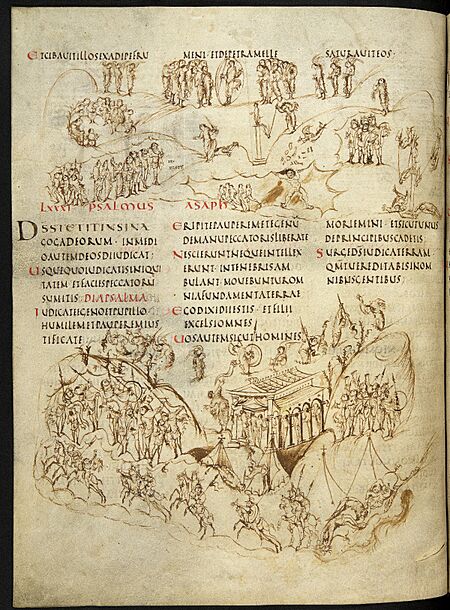 ETCIBAVITILLOSEXADIPEFRU MENI ETDEPETRAMELLE SATURAVITEOS·
LXXXI PSALMUS ASAPH
DSSTETITINSINA
GOGADEORUM· INMEDI
OAUTEMDEOSDIIUDICAT·
USQUEQUOIUDICATISINIQUI
TATEM ETFACIESPECCATORU
SUMITIS· DIAPSALMA
IUDICATEEGENOETPUPILLO
HUMILEMETPAUPEREMIUS
TIFICATE
ERIPITEPAUPEREMETEGENU
DEMANUPECCATORISLIBERATE
NESCIERUNTNEQUEINTELLEX
ERUNT· INTENEBRISAM
BULANT· MOVEBUNTUROM
NIAFUNDAMENTATERRAE
EGODIXIDIIESTIS ETFILII
EXCELSIOMNES
UOSAUTEMSICUTHOMINES
MORIEMINI· ETSICUTUNUS
DEPRINCIPIBUSCADETIS·
SURGEDSIUDICATERRAM
QMTUEREDITABISINOM
NIBUSGENTIBUS·